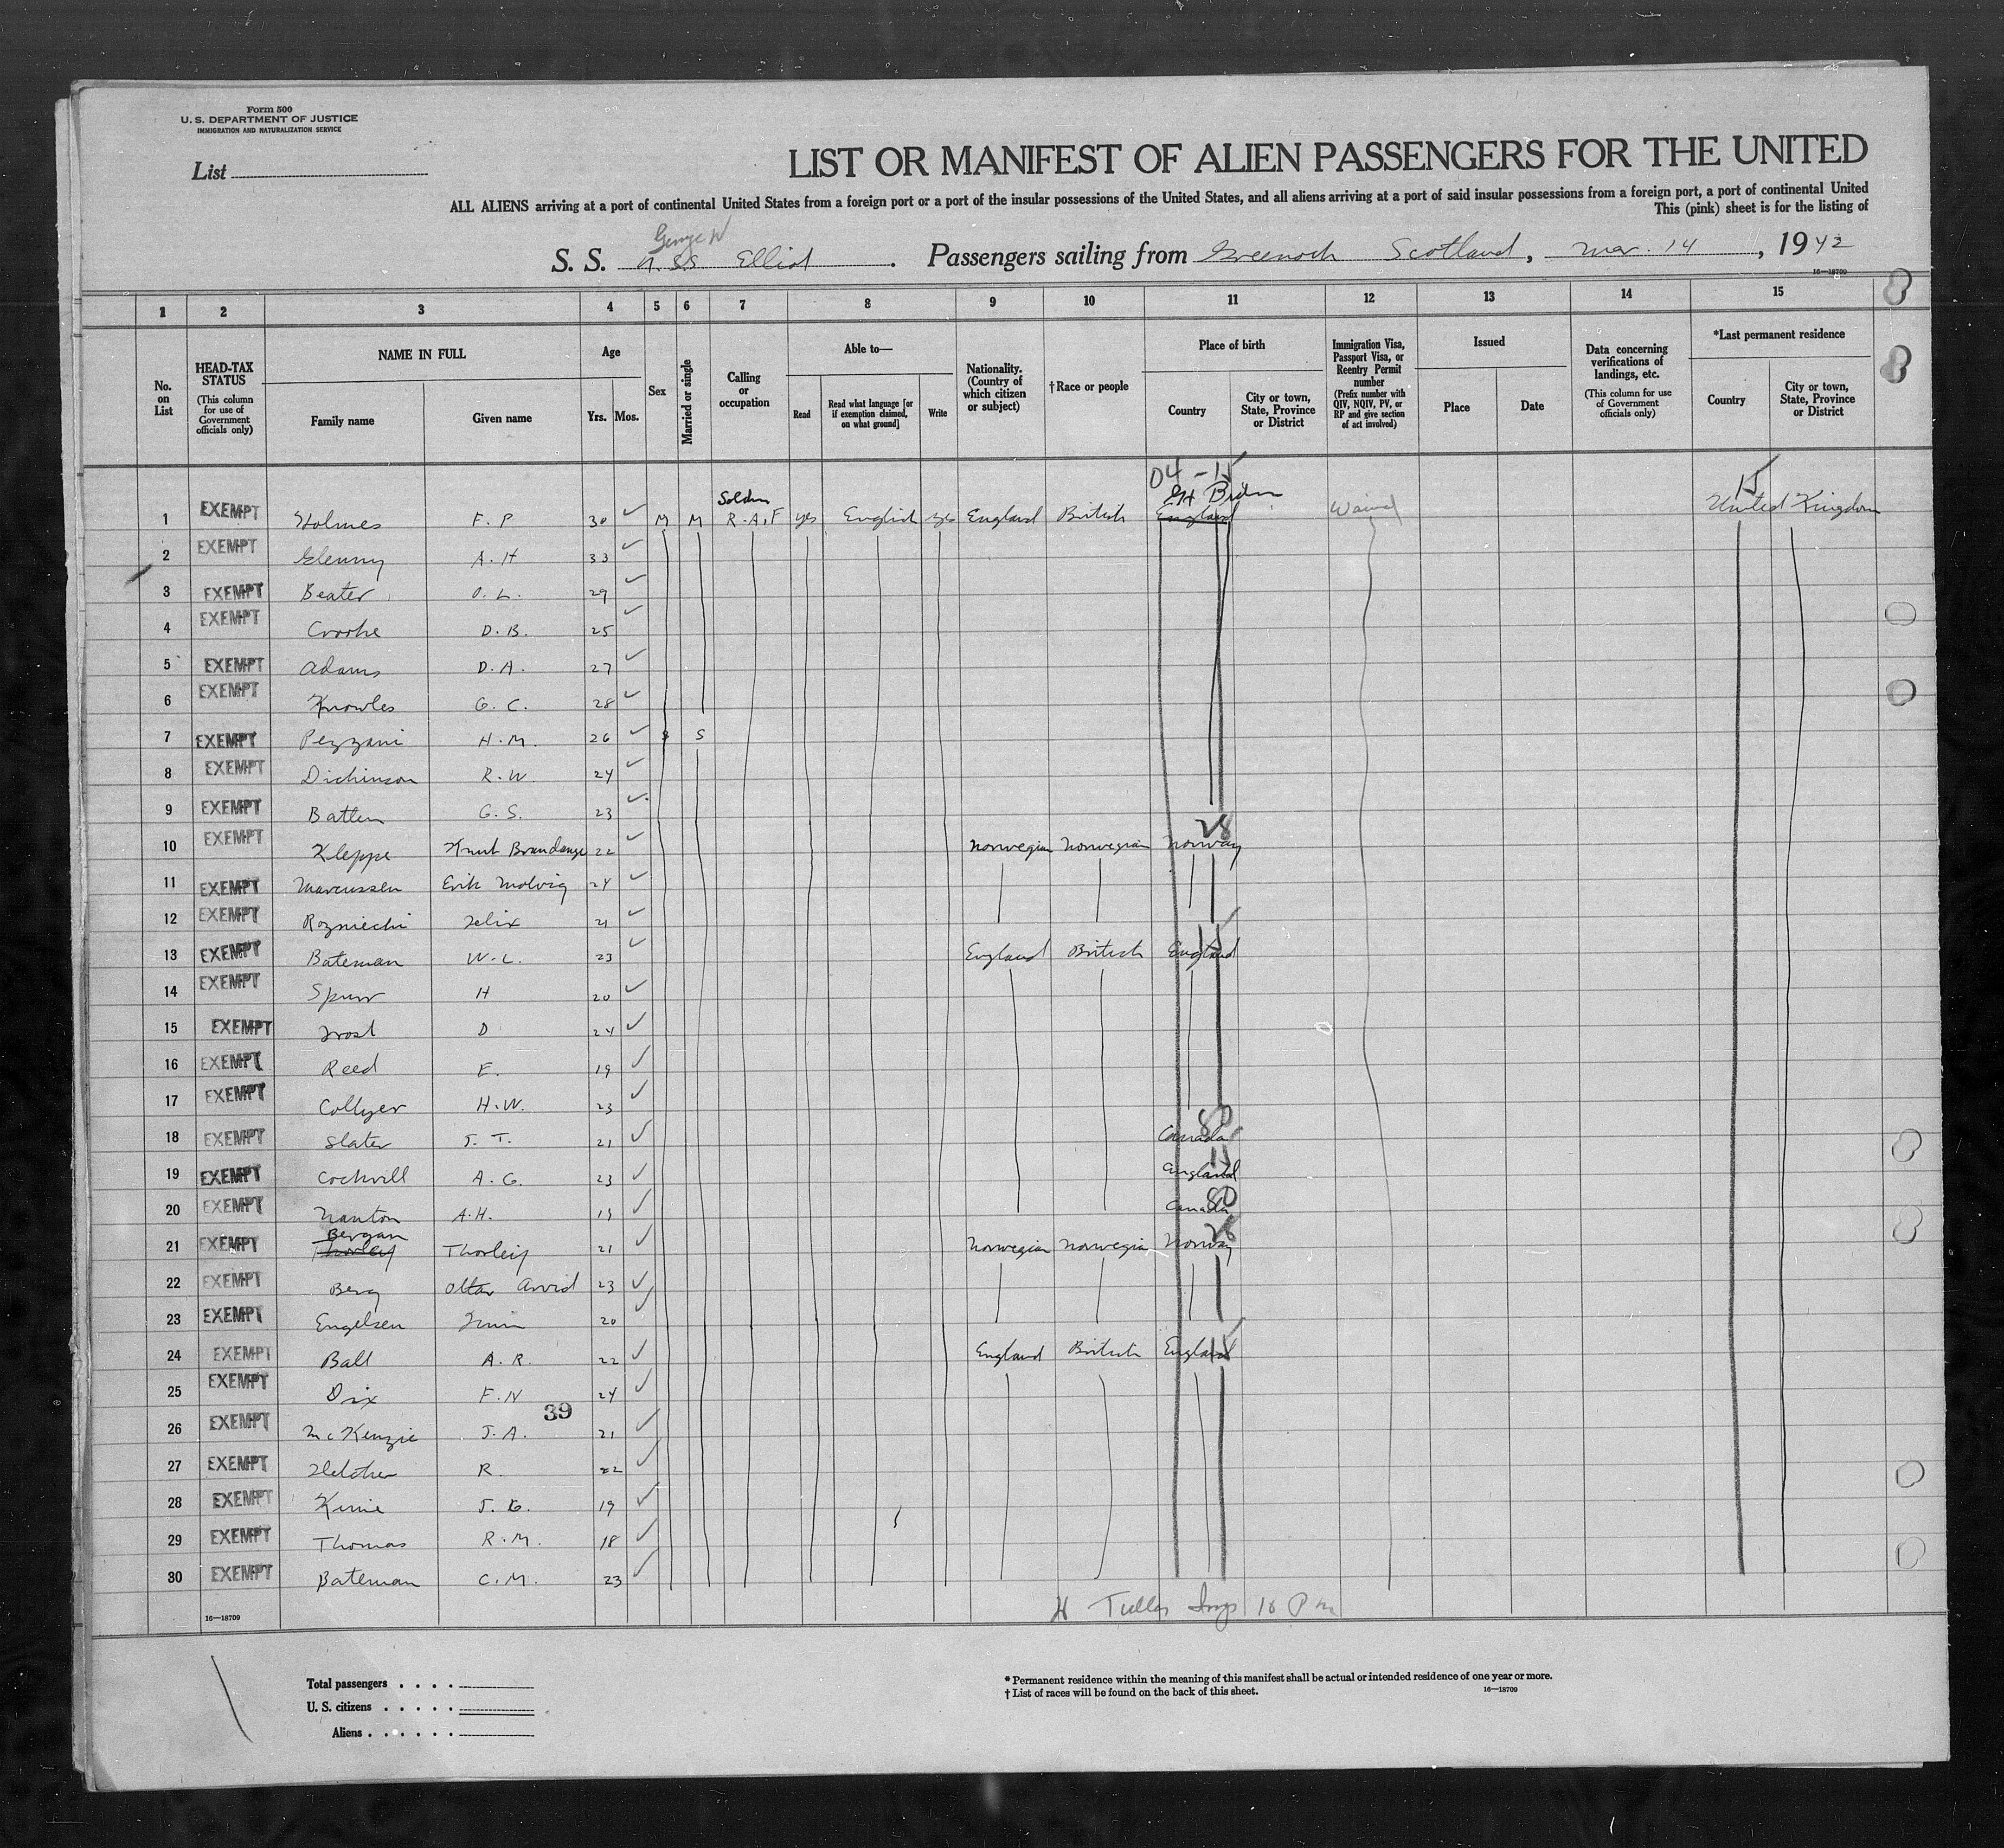 Form 500
U. S. DEPARTMENT OF JUSTICE
IMMIGRATION AND NATURALIZATION SERVICE
List
LIST OR MANIFEST OF ALIEN PASSENGERS FOR THE UNITED
ALL ALIENS arriving at a port of continental United States from a foreign port or a port of the insular possessions of the United States, and all aliens arriving at a port of said insular possessions from a foreign port, a port of continental United
This (pink) sheet is for the listing of
George W
S. S. U.SS Elliot . Passengers sailing from Greenock Scotland, Mar. 14, 1942
16—18709
1 2 3 4 5 6 7 8 9 10 11 12 13 14 15
No. on List
HEAD-TAX STATUS (This column for use of Government officials only)
NAME IN FULL
Family name Given name
Age
Yrs. Mos.
Sex
Married or single
Calling or occupation
Able to—
Read
Read what language [or if exemption claimed, on what ground]
Write
Nationality. (Country of which citizen or subject)
†Race or people
Place of birth
Country
City or town, State, Province or District
Immigration Visa, Passport Visa, or Reentry Permit number (Prefix number with QIV, NQIV, PV, or RP and give section of act involved)
Issued
Place Date
Data concerning verifications of landings, etc. (This column for use of Government officials only)
*Last permanent residence
Country
City or town, State, Province or District
04 - 15
15
1 EXEMPT Holmes F. P 30 M M R.A.F yes English yes England British England Waived United Kingdom
2 EXEMPT Glenny A. H 33
3 EXEMPT Beater O. L. 29
4 EXEMPT Crooke D. B. 25
5 EXEMPT Adams D. A. 27
6 EXEMPT Knowles G. C. 28
7 EXEMPT Pezzani H. M. 26 S
8 EXEMPT Dickinson R. W. 24
9 EXEMPT Batten G. S. 23
28
10 EXEMPT Kleppe Knut 22 Norwegian Norwegian Norway
11 EXEMPT Marcussen Erik Molvig 24
12 EXEMPT Rozniecki Felix 21
13 EXEMPT Bateman W. L. 23 England British England
14 EXEMPT Spurr H 20
15 EXEMPT Frost D 24
16 EXEMPT Reed E. 19
17 EXEMPT Collyer H. W. 23
80
18 EXEMPT Slater J. T. 21 Canada
19 EXEMPT Cockrill A. G. 23 England
80
20 EXEMPT Nanton A.H. 19 Canada
Bergan 28
21 EXEMPT Thorleif Thorleif 21 Norwegian Norwegian Norway
22 EXEMPT Berg Ottar Arvid 23
23 EXEMPT Engelsen Finn 20
24 EXEMPT Ball A. R. 22 England British England
25 EXEMPT Dix F. N 24
39
26 EXEMPT McKenzie J. A. 21
27 EXEMPT Fletcher R. 22
28 EXEMPT 19
29 EXEMPT Thomas R. M. 18
30 EXEMPT Bateman C. M. 23
16—18709
Total passengers
U. S. citizens
Aliens
* Permanent residence within the meaning of this manifest shall be actual or intended residence of one year or more.
† List of races will be found on the back of this sheet.
16—18709